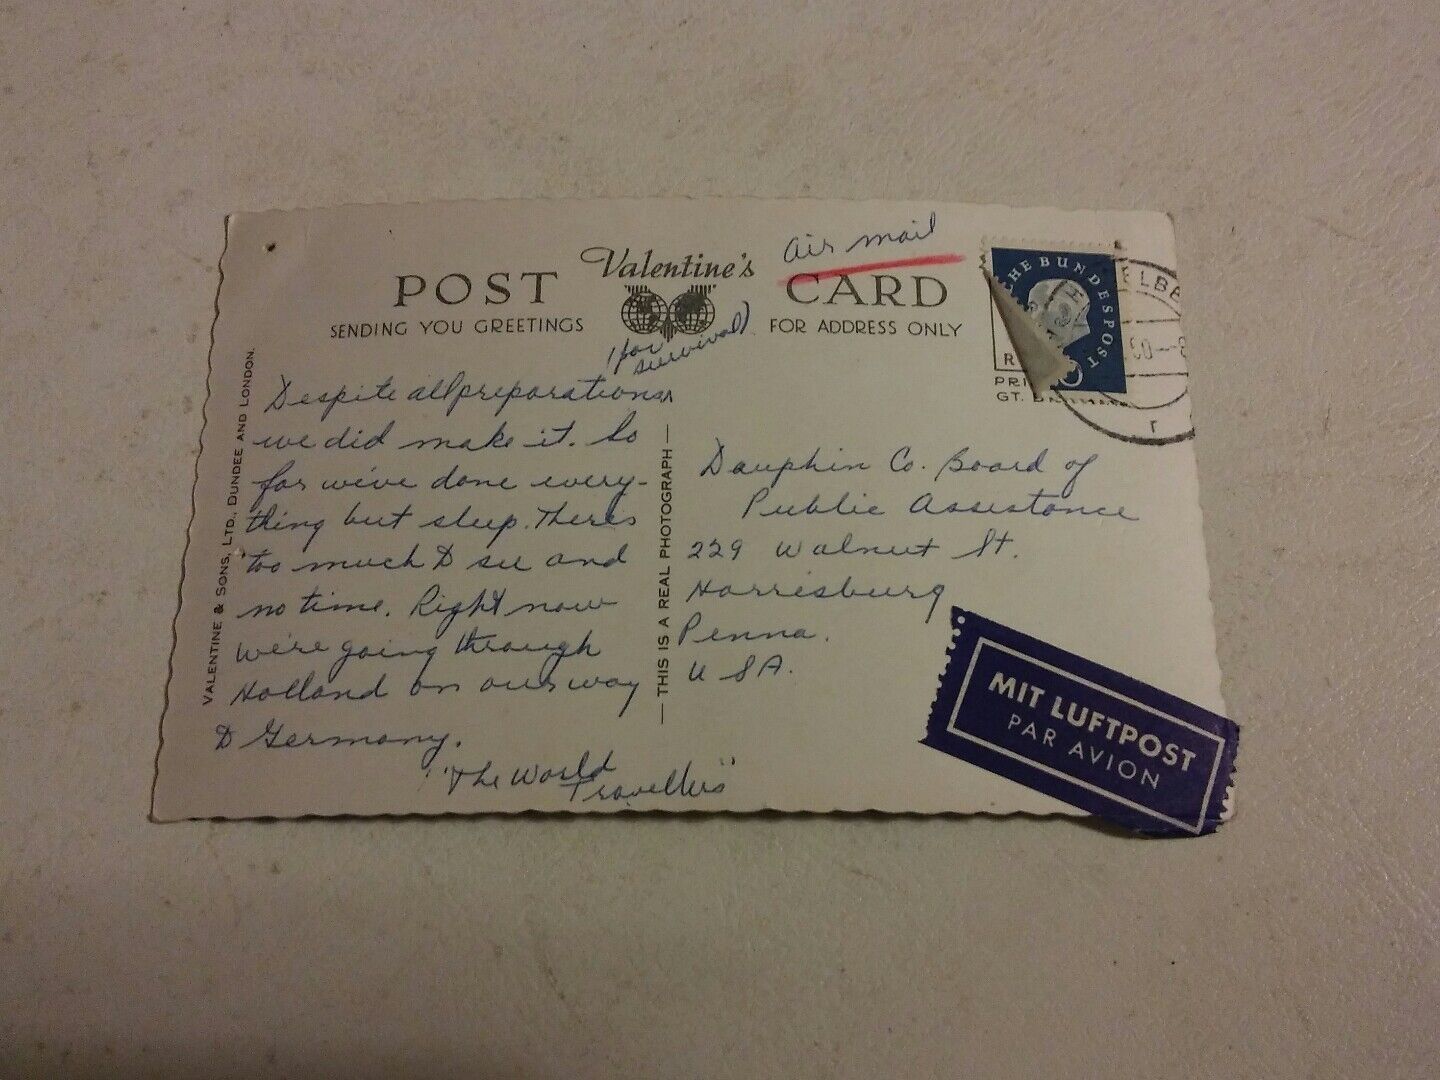 Valentine's
air mail
POST CARD
SENDING YOU GREETINGS
FOR ADDRESS ONLY
(for
survival)
Despite all preparations ^
we did make it. So
far we've done every-
thing but sleep. There's
too much to see and
no time. Right now
we're going through
Holland on our way
to Germany.
"The World
Travellers"
VALENTINE & SONS, LTD., DUNDEE AND LONDON.
— THIS IS A REAL PHOTOGRAPH —
Dauphin Co. Board of
Public Assistance
229 Walnut St.
Harrisburg
Penna.
USA.
CHE BUNDESPOST
ELBE
R
PRI
GT.
r
MIT LUFTPOST
PAR AVION